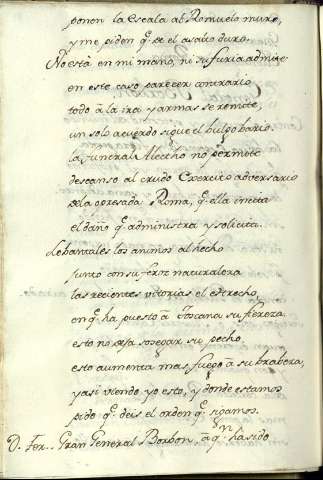 ponen la escala al Romuleo muro,
y me piden q.e dè el asalto duro.
No està en mi mano, ni su furia admite
en este caso parecer contrario
todo à la ira y armas se remite,
un solo acuerdo sigue el bulgo bario.
La funeral Alecho no permite
descanso al crudo Exercito adversario
de la opresada Roma, q.e ella incita
el daño q.e administra y solicita.
Lebantales los animos al hecho
junto con su feroz naturaleza
las recientes vitorias, el estrecho
en q.e ha puesto à Toscana su fiereza.
esto no deja sosegar su pecho,
esto aumenta mas fuego à su brabeza,
y asi viendo yo esto, y donde estamos
pido q.e deis el orden q.e sigamos.
D. Fer.. Gran General Borbon, à q.n ha sido